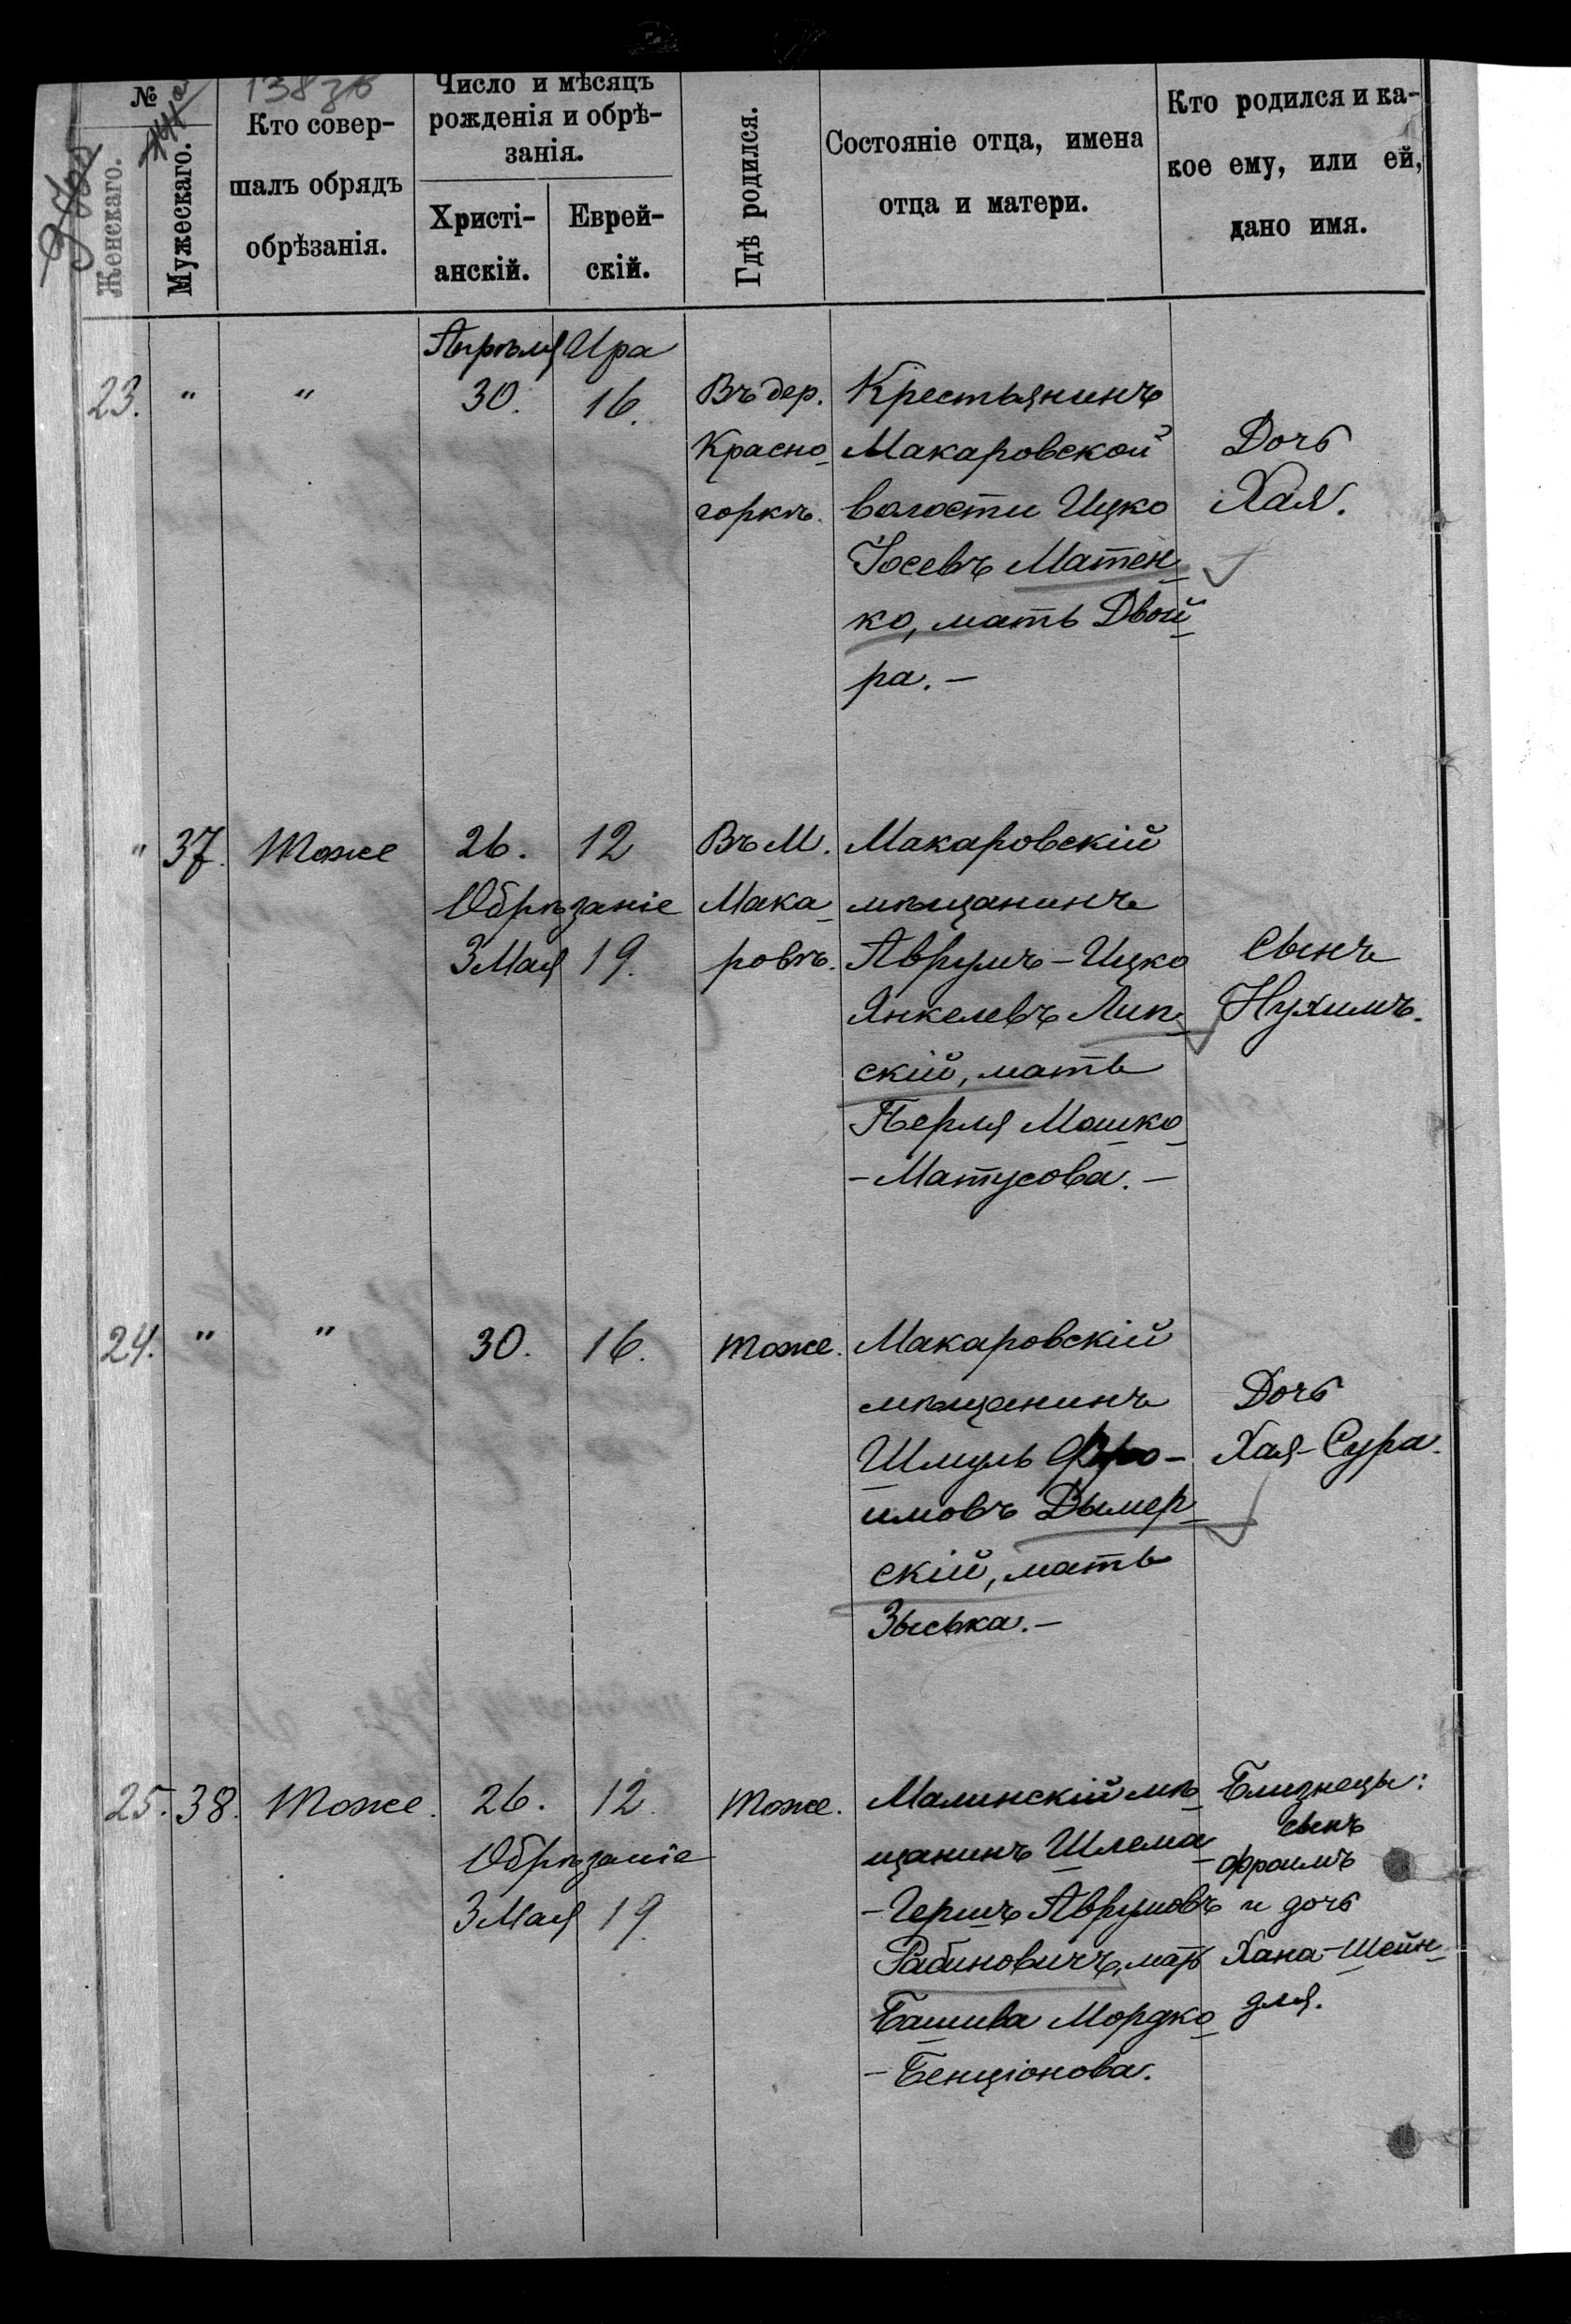 №
Женскаго.
Мужескаго.
Кто совер-
шалъ обрядъ
обрѣзанія.
Число и мѣсяцъ
рожденія и обрѣ-
занія.
Христі-
анскій.
Еврей-
скій.
Гдѣ родился.
Состояніе отца, имена
отца и матери.
Кто родился и ка-
кое ему, или ей,
дано имя.
Апрѣля Ира
23. " " 30. 16.
Въ дер.
Красно-
горкѣ.
Крестьянинъ
Макаровской
волости Ицко
Іосевъ Матен-
ко, мать Двой-
ра. —
Дочь
Хая.
" 37. Тоже 26. 12
Обрѣзаніе
3 Мая 19.
Въ М.
Мака-
ровѣ.
Макаровскій
мѣщанинъ
Аврумъ-Ицко
Янкелевъ Лип-
скій, мать
Перля Мошко-
-Матусова. —
Сынъ
Нухимъ.
24. " " 30. 16. Тоже.
Макаровскій
мѣщанинъ
Шмуль Фро-
имовъ Дымер-
скій, мать
Зыська. —
Дочь
Хая-Сура.
25. 38. Тоже. 26. 12.
Обрѣзаніе
3 Мая 19.
Тоже.
Малинскій мѣ-
щанинъ Шлема-
-Гершъ Аврумовъ
Рабиновичъ, мать
Башива Мордко-
-Бенціонова.
Близнецы:
сынъ
Фроимъ
и дочь
Хана-Шейн-
для.